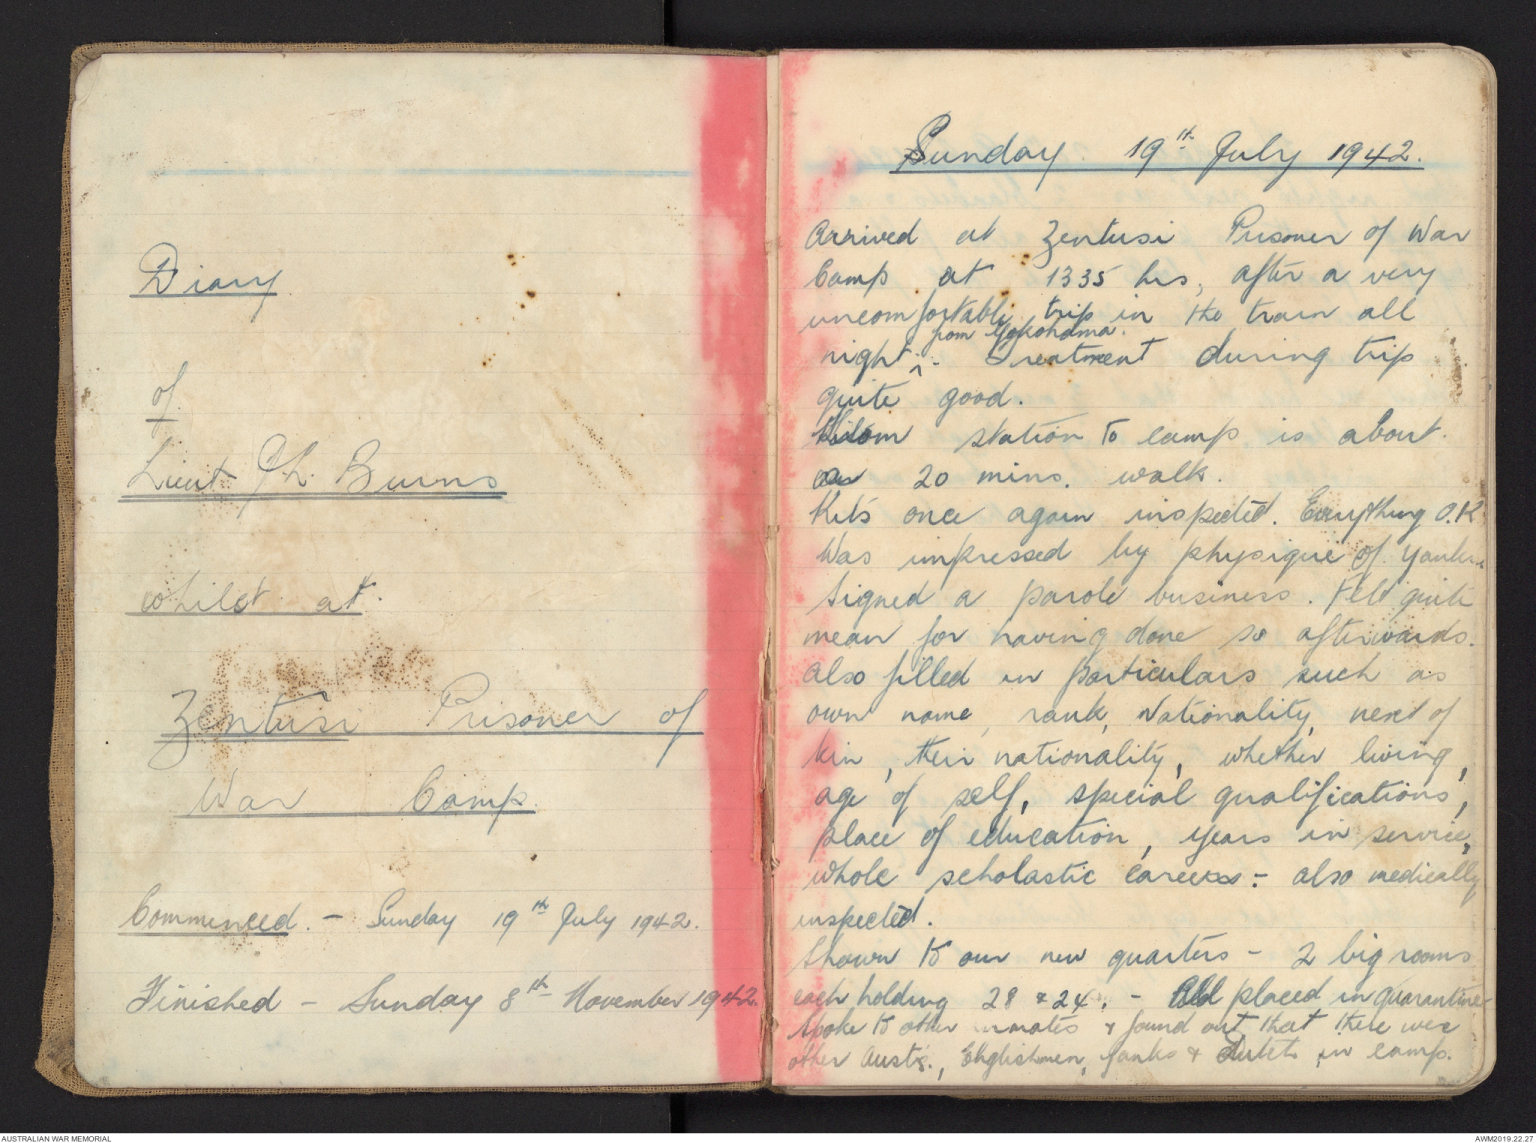 Diary
of
Lieut Ch. Burns
whilst at
Zentusi Prisoner of
War Camp.
Commenced. - Sunday 19th July 1942.
Finished - Sunday 8th November 1942.
Sunday 19th July 1942.
Arrived at Zentusi Prisoner of War
Camp at 1335 hrs, after a very
uncomfortable trip in the train all
from Yokohama.
night ^. - Treatment during trip
quite good.
From station to camp is about
20 mins. walk.
Kits once again inspected. Everything O.K
Was impressed by physique of Yanks
Signed a parole business. Felt quite
mean for having done so afterwards.
Also filled in particulars such as
own name, rank, Nationality, next of
kin, their nationality, whether living,
age of self, special qualifications,
place of education, years in service,
whole scholastic career - also medically
inspected.
Shown to our new quarters - 2 big rooms
each holding 28 & 24. - All placed in quarantine
Spoke to other inmates & found out that there were
other Austs., Englishmen, Yanks & Dutch in camp.
AUSTRALIAN WAR MEMORIAL
AWM2019.22.27